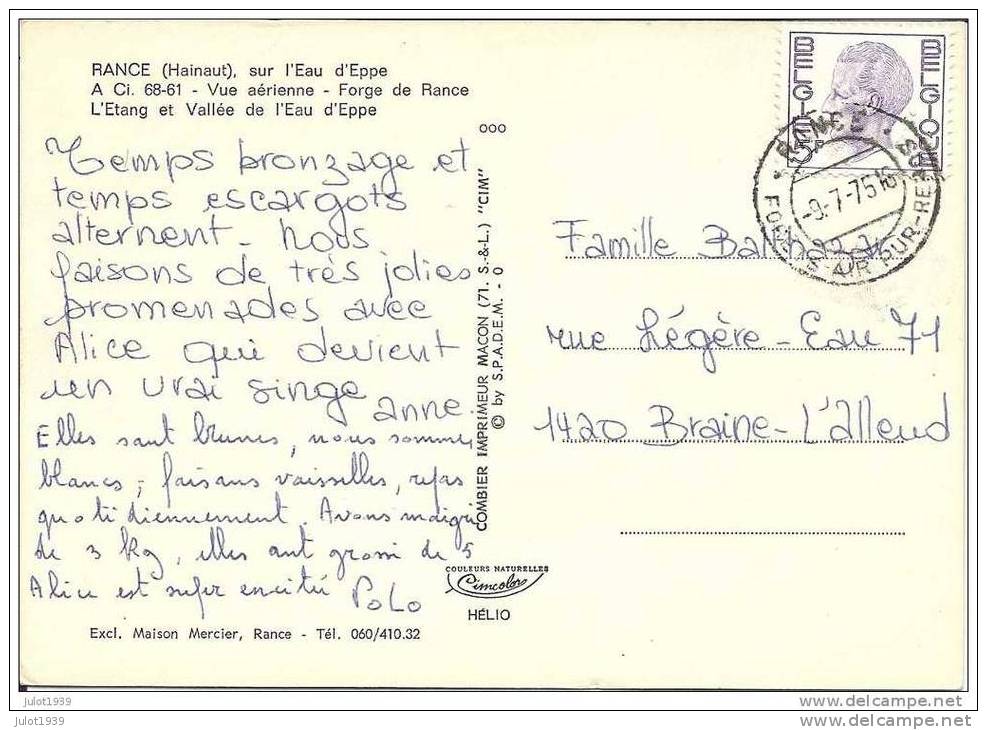 RANCE (Hainaut), sur l'Eau d'Eppe
A Ci. 68-61 - Vue aérienne - Forge de Rance
L'Etang et Vallée de l'Eau d'Eppe
Temps bronzage et
temps escargots
alternent. Nous
faisons de très jolies
promenades avec
Alice qui devient
un vrai singe
anne.
Elles sont brunes, nous sommes
blancs, faisons vaisselles, repas
quotidiennement. Avons maigri
de 3 kg, elles ont grossi de 5
Alice est super excitée
POLO
Excl. Maison Mercier, Rance - Tél. 060/410.32
ooo
COMBIER IMPRIMEUR MACON (71. S.-&-L.) "CIM"
© by S.P.A.D.E.M. - O
COULEURS NATURELLES
Cimcolor
HÉLIO
BELGIE
BELGIQUE
RANCE
-9-7-75 16
AIR PUR-REPOS
Famille Balthazar
rue Légère-Eau 71
1420 Braine-L'alleud
julot1939
julot1939
www.delcampe.net
www.delcampe.net